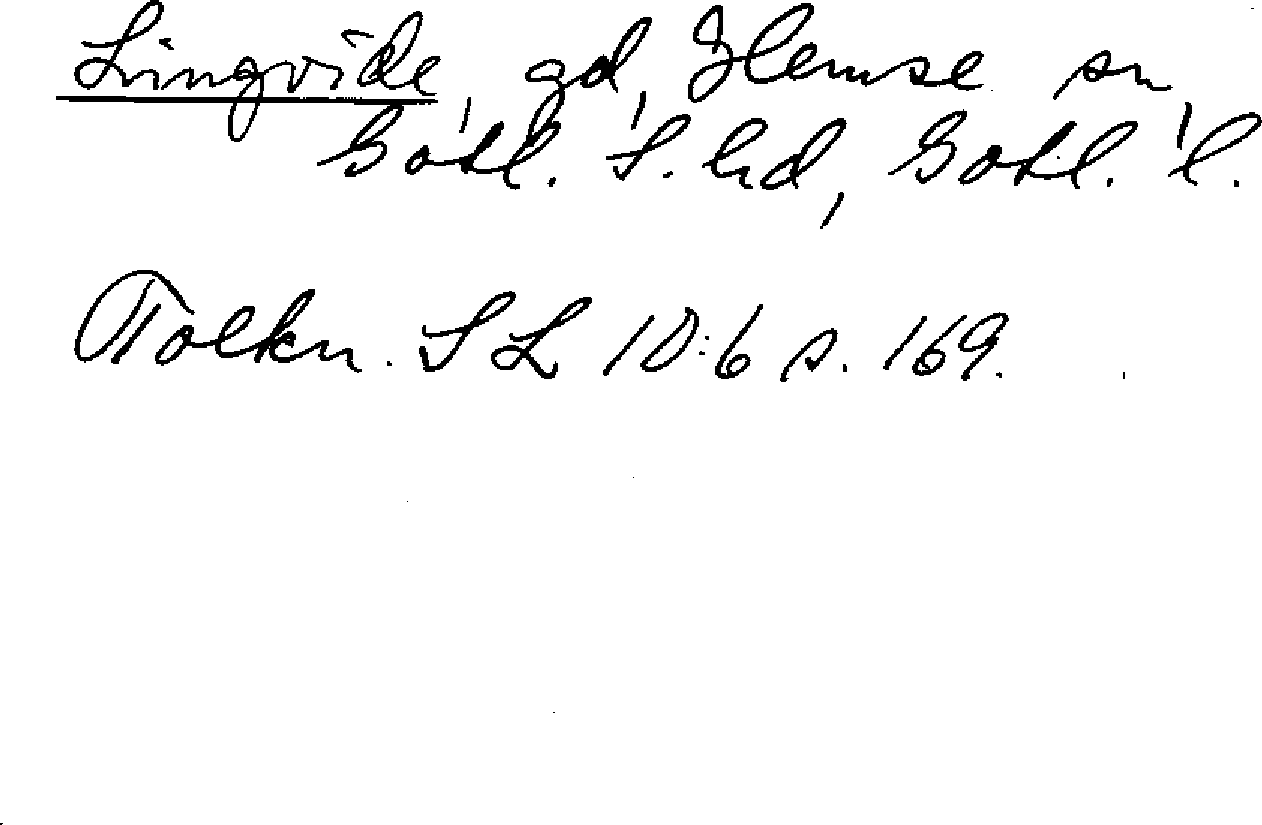 Lingvide, gd, Hemse sn
Gotl. S. hd, Gotl. l.
Tolkn. SL 10:6 s. 169.